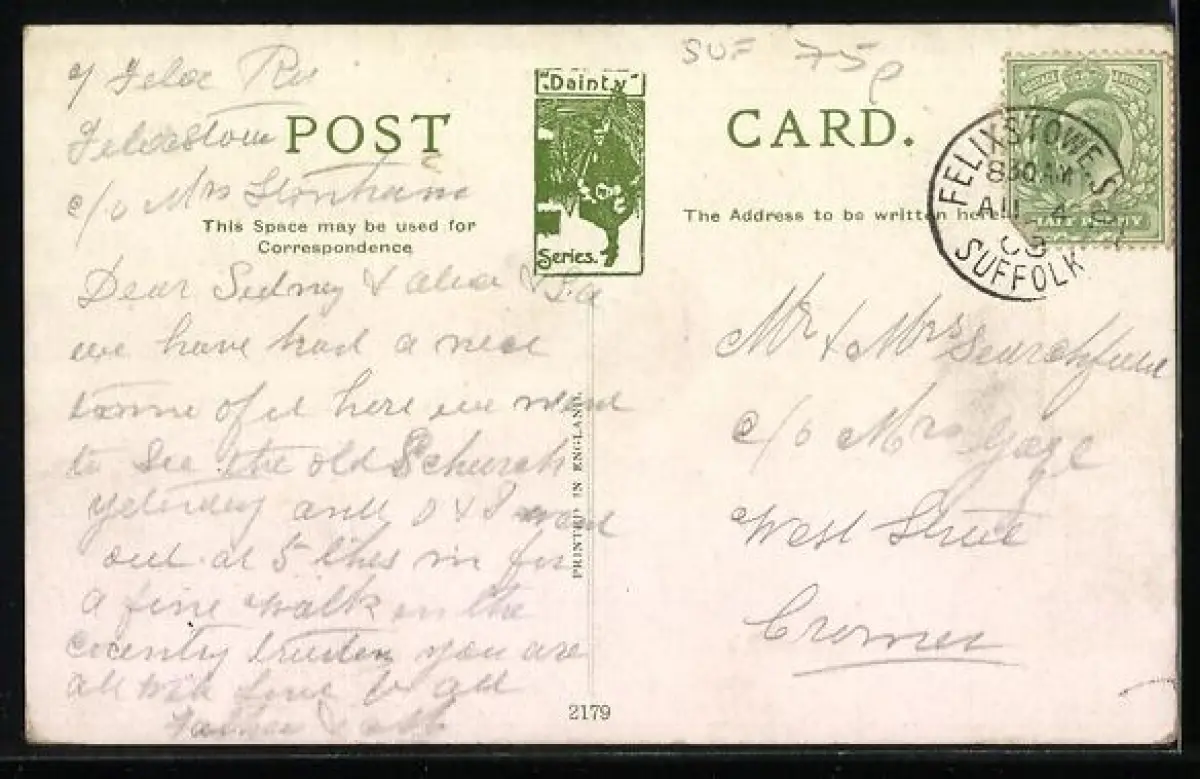 SUF 75p
POST CARD.
"Dainty"
Series.
This Space may be used for
Correspondence
The Address to be written here
FELIXSTOWE. S.
8 30 AM
AU 4
SUFFOLK
HALF PENNY
Felixstowe
c/o Mrs
Dear Sidney &
we have had a nice
of it here we went
to See the old Church
yesterday and
out at 5 this for
a fine walk in the
country you are
all love to all
Father &
Mr & Mrs Searchfield
c/o Mrs Gage
West Street
Cromer
PRINTED IN ENGLAND.
2179